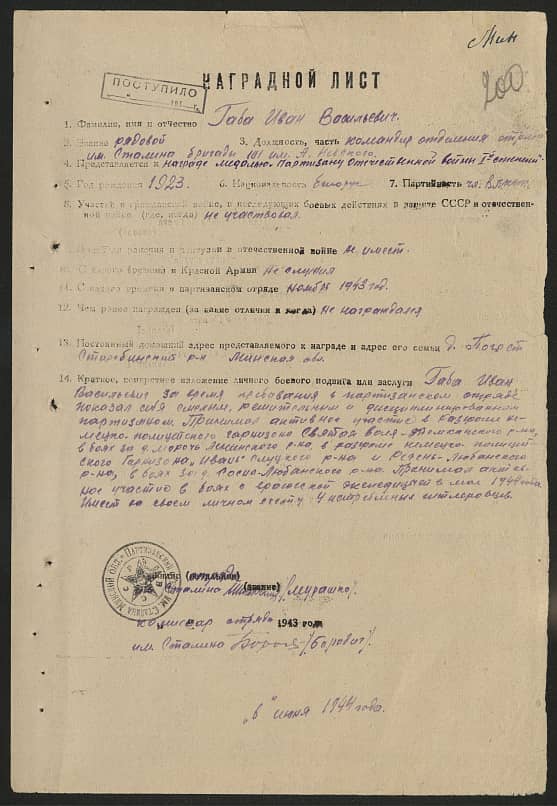 Мин
200
ПОСТУПИЛО
НАГРАДНОЙ ЛИСТ
1. Фамилия, имя и отчество Габа Иван Васильевич.
2. Звание рядовой 3. Должность, часть командир отделения отряда
им. Сталина бригады 101 им. А. Невского.
4. Представляется к награде медалью "Партизану Отечественной войны I степени"
5. Год рождения 1923. 6. Национальность белорус 7. Партийность чл. ВЛКСМ
8. Участие в гражданской войне, и последующих боевых действиях в защите СССР и отечествен-
ной войне (где, когда) не участвовал
ранения и контузии в отечественной войне не имеет.
10. С какого времени в Красной Армии не служил
11. С какого времени в партизанском отряде ноябрь 1943 год.
12. Чем ранее награжден (за какие отличия и когда) не награждался
13. Постоянный домашний адрес представляемого к награде и адрес его семьи д. Погост
Старобинский р-н Минская обл.
14. Краткое, конкретное изложение личного боевого подвига или заслуги Габа Иван
Васильевич за время пребывания в партизанском отряде
показал себя смелым, решительным и дисциплинированным
партизаном. Принимал активное участие в разгроме не-
мецко-полицейского гарнизона Святая воля р-на,
в боях за д. Морочь р-на в разгроме немецко полицей-
ского Гарнизона "Иване" Слуцкого р-на и Редень-Любанского
р-на, в боях за д. Любанского р-на. Принимал актив-
ное участие в боях с вражеской экспедицией в мае 1944 года
Имеет на своем личном счету 4 истребленных гитлеровцев.
отряда
(звание)
Сталина (Мурашко).
комиссар отряда 1943 года
им. Сталина (Борович)
"6" июня 1944 года.